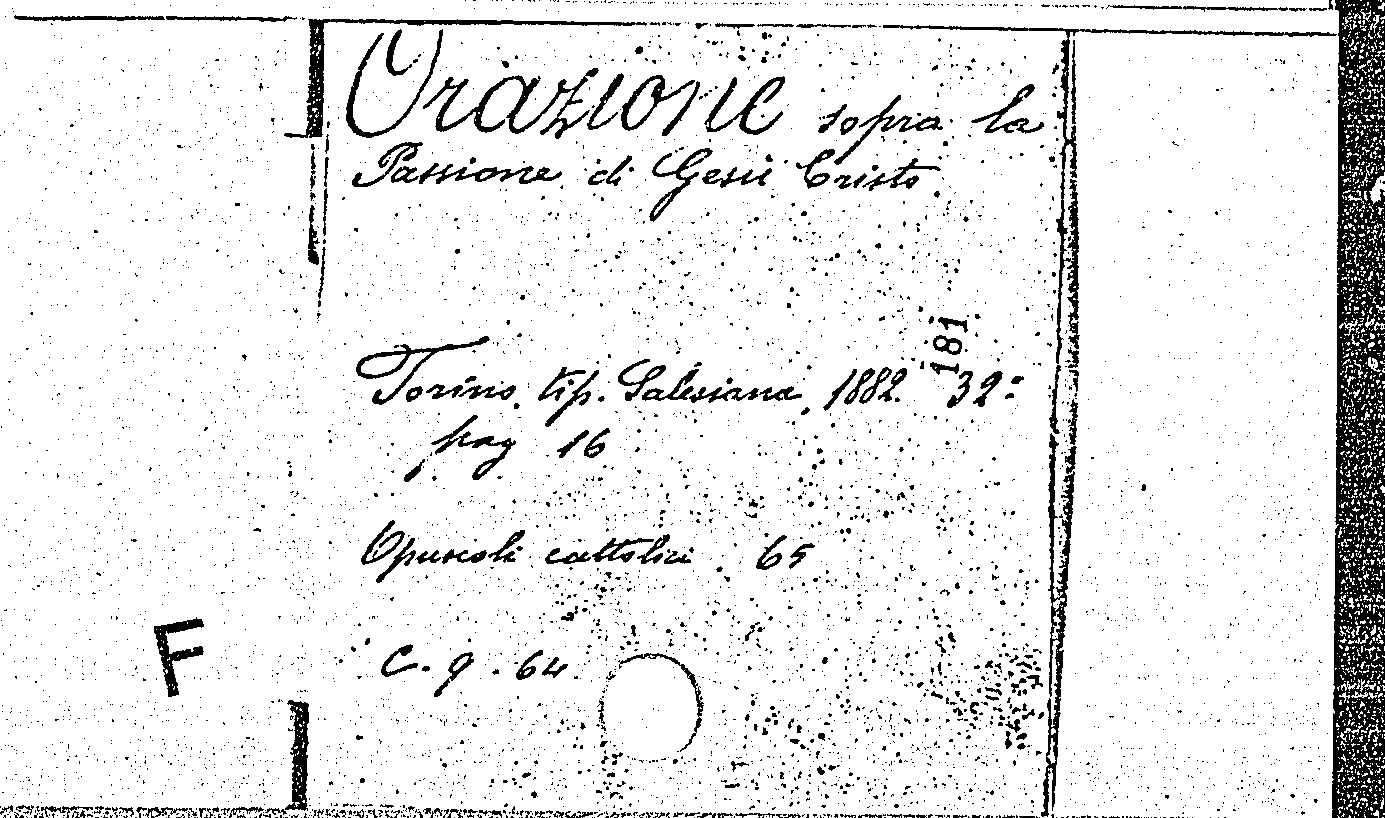 Orazione sopra la
Passione di Gesù Cristo.
181
Torino, tip. Salesiana, 1882. 32:
pag 16
Opuscoli cattolici. 65
C. 9. 64
F